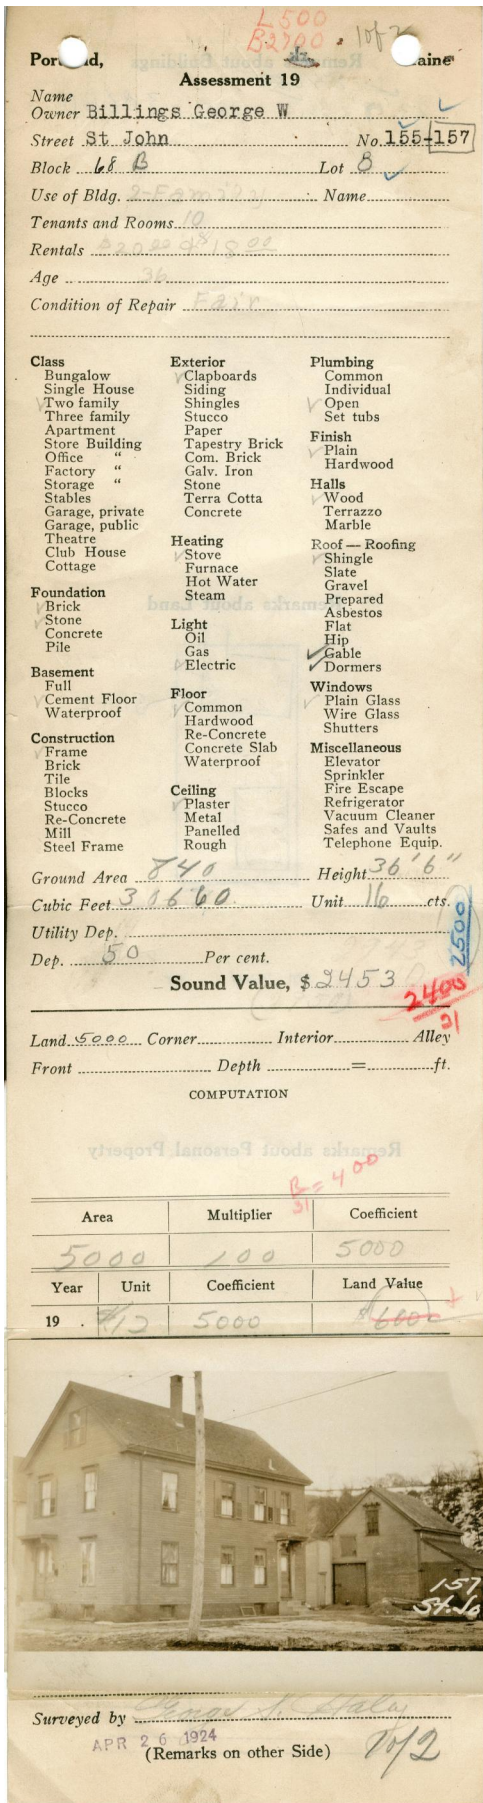 L500
B2700 . 1 of 2
Portland, Maine
Assessment 19
Name
Owner Billings George W
Street St John No. 155-157
Block 68 B Lot 8
Use of Bldg. 2-Family Name
Tenants and Rooms 10
Rentals $20.00 & 18.00
Age 36
Condition of Repair Fair
Class
Bungalow
Single House
✓ Two family
Three family
Apartment
Store Building
Office "
Factory "
Storage "
Stables
Garage, private
Garage, public
Theatre
Club House
Cottage
Foundation
✓ Brick
✓ Stone
Concrete
Pile
Basement
Full
✓ Cement Floor
Waterproof
Construction
✓ Frame
Brick
Tile
Blocks
Stucco
Re-Concrete
Mill
Steel Frame
Exterior
✓ Clapboards
Siding
Shingles
Stucco
Paper
Tapestry Brick
Com. Brick
Galv. Iron
Stone
Terra Cotta
Concrete
Heating
✓ Stove
Furnace
Hot Water
Steam
Light
Oil
Gas
✓ Electric
Floor
✓ Common
Hardwood
Re-Concrete
Concrete Slab
Waterproof
Ceiling
✓ Plaster
Metal
Panelled
Rough
Plumbing
Common
Individual
✓ Open
Set tubs
Finish
✓ Plain
Hardwood
Halls
✓ Wood
Terrazzo
Marble
Roof — Roofing
✓ Shingle
Slate
Gravel
Prepared
Asbestos
Flat
Hip
✓ Gable
✓ Dormers
Windows
✓ Plain Glass
Wire Glass
Shutters
Miscellaneous
Elevator
Sprinkler
Fire Escape
Refrigerator
Vacuum Cleaner
Safes and Vaults
Telephone Equip.
Ground Area 840 Height 36'6"
Cubic Feet 30660 Unit 16 cts.
Utility Dep.
2500
Dep. 50 Per cent.
Sound Value, $ 2453
2400
31
Land 5000 Corner Interior Alley
Front Depth = ft.
COMPUTATION
Remarks about Personal Property
B = 400
31
Area Multiplier Coefficient
5000 100 5000
Year Unit Coefficient Land Value
19 . $12 5000 $600
157
St. Jo
Surveyed by
APR 26 1924
(Remarks on other Side) 1 of 2